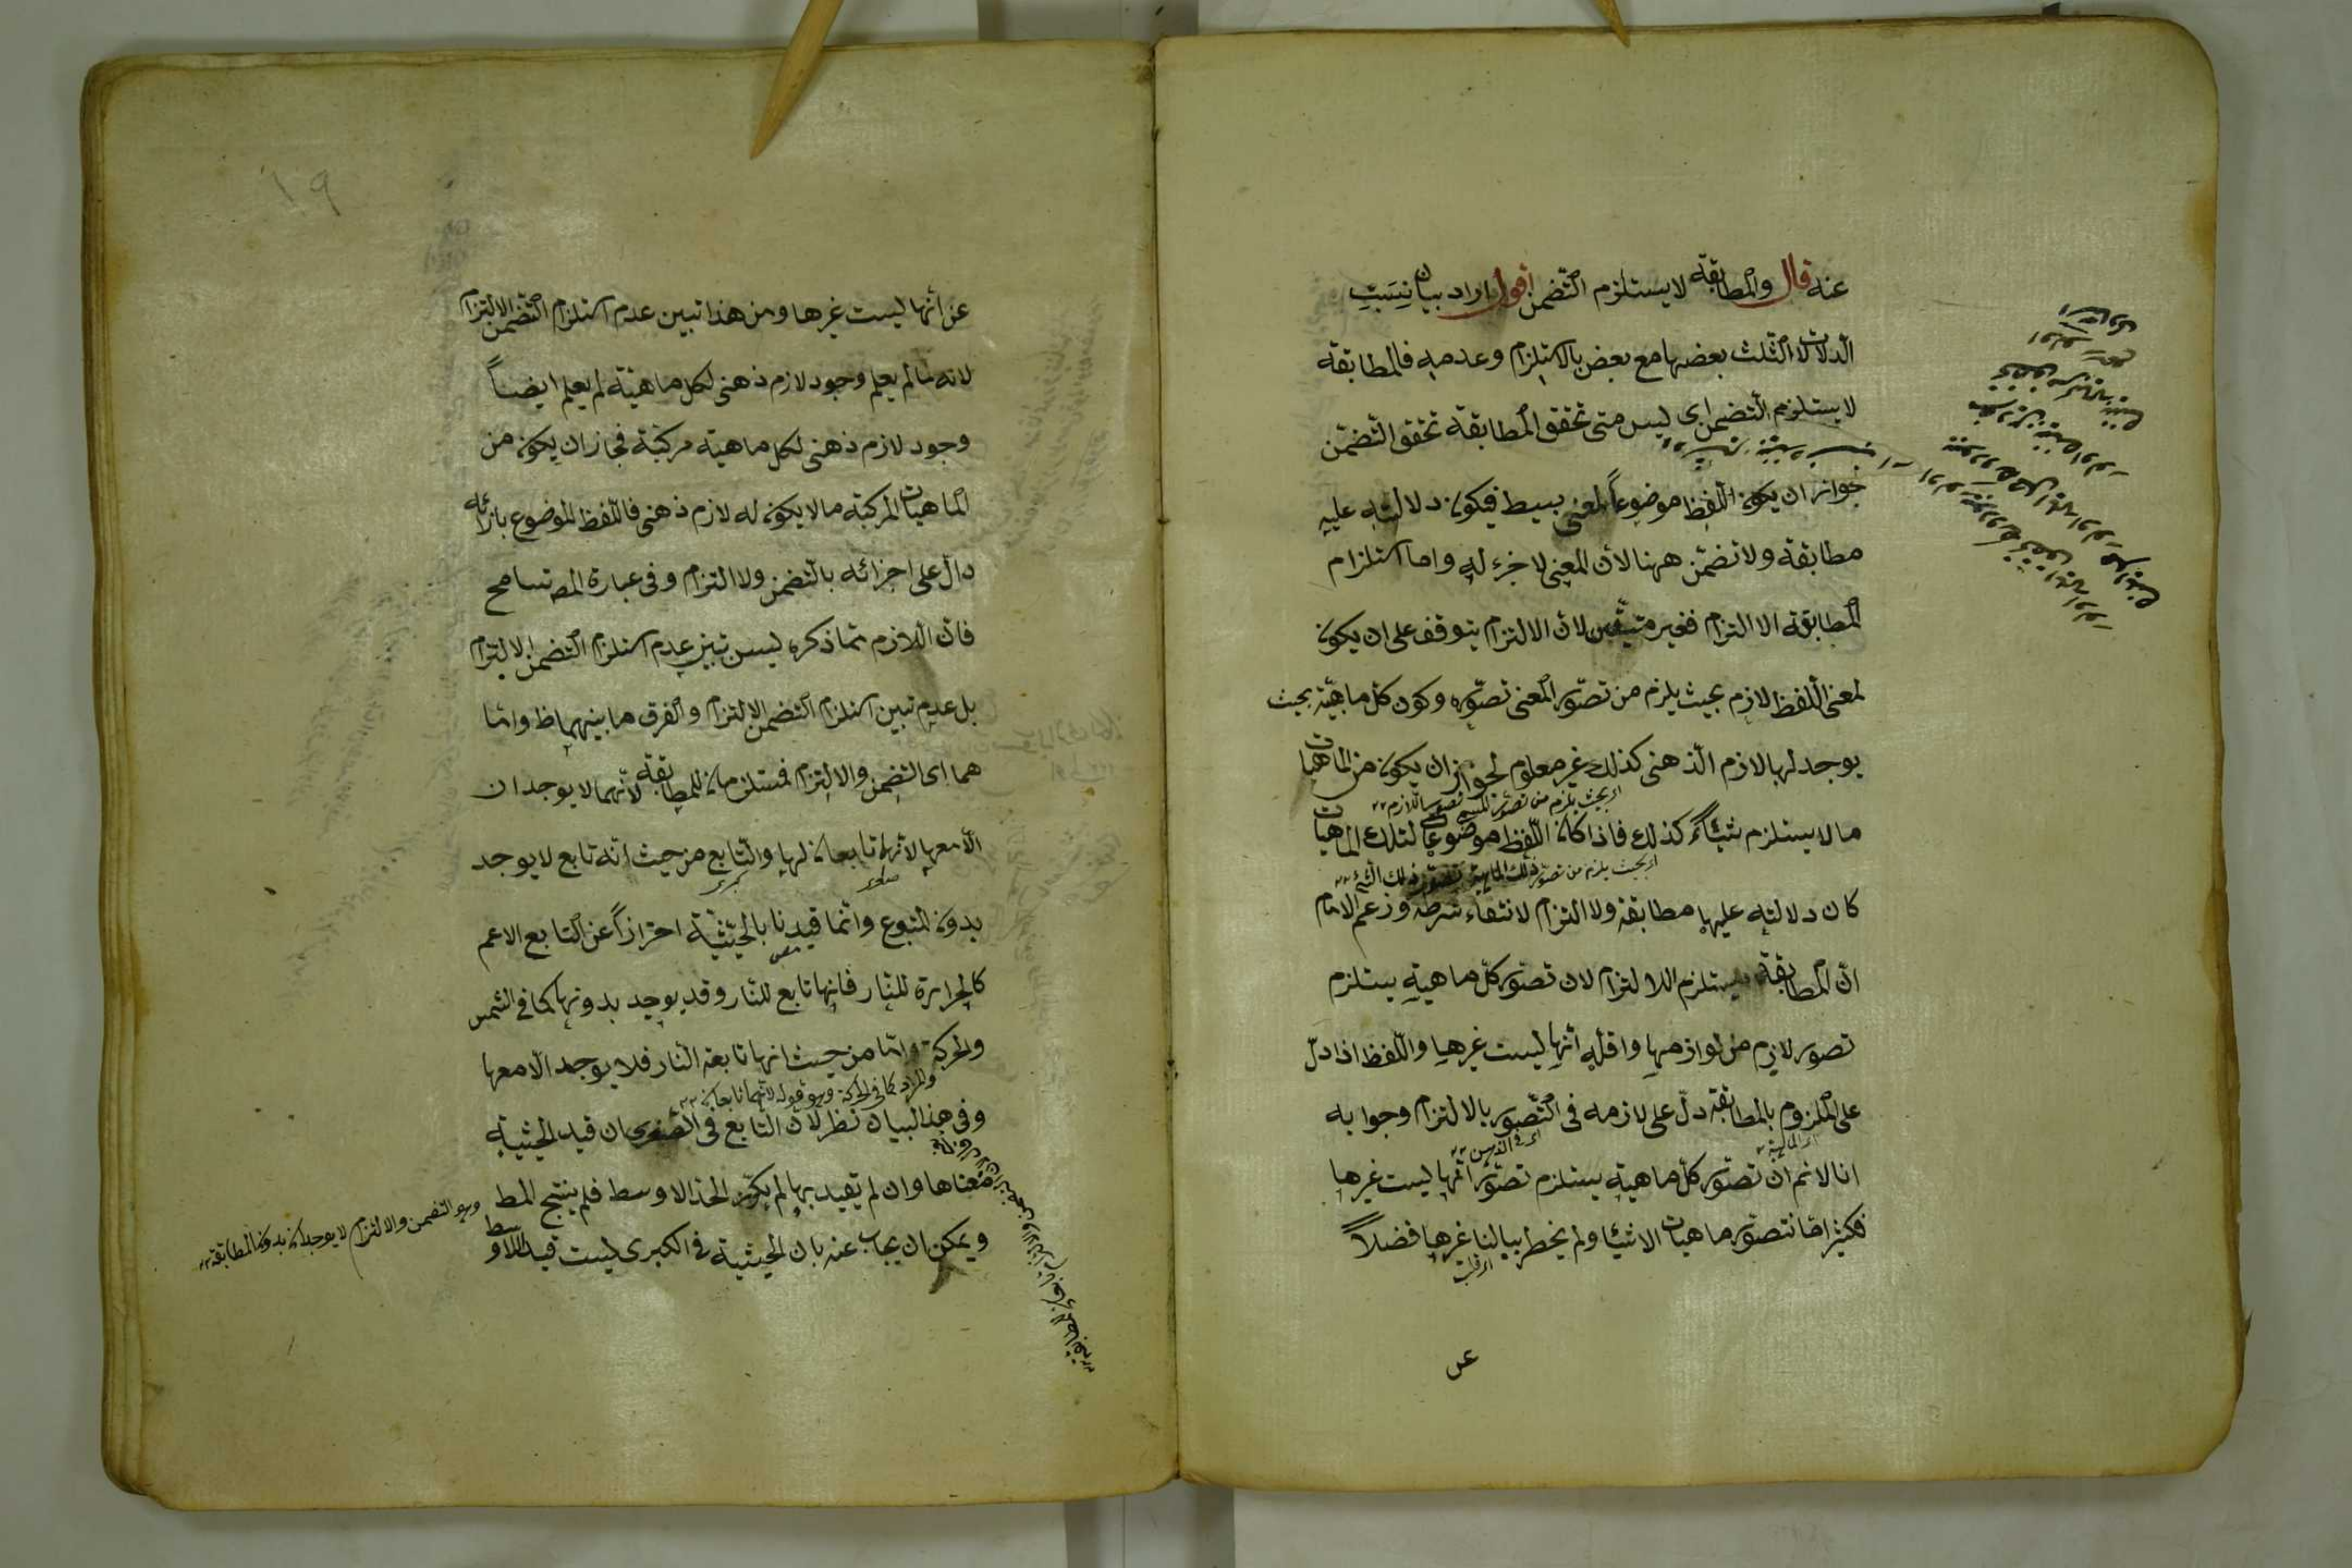 عنه قال والمطابقة لا يستلزم التضمن اقول اراد بيان نسبت
الدلالات الثلث بعضها مع بعض بالاستلزام وعدمه فالمطابقة
لا يستلزم التضمن اى ليس متى تحقق المطابقة تحقق التضمن
جواز ان يكون اللفظ موضوعاً لمعنى بسيط فيكون دلالته عليه
مطابقة ولا تضمن ههنا لأن المعنى لا جزء له واما استلزام
المطابقة الا التزام فغير متيقن لان الالتزام يتوقف على ان يكون
لمعنى اللفظ لازم بحيث يلزم من تصور المعنى تصوره وكون كل ماهية بحيث
يوجد لها لازم الذهنى كذلك غير معلوم لجواز ان يكون من الماهيات
اى بحيث يلزم من تصور المسمى تصور اللازم
ما لا يستلزم شيئاً كذلك فاذا كان اللفظ موضوعا لتلك الماهيات
اى بحيث يلزم من تصور ذلك الماهية تصور ذلك الشئ
كان دلالته عليها مطابقة ولا التزام لانتفاء شرطه وزعم الامام
ان المطابقة يستلزم اللالتزام لان تصور كل ماهية يستلزم
تصور لازم من لوازمها واقله أنها ليست غيرها واللفظ اذا دل
على الملزوم بالمطابقة دل على لازمه فى التصور بالالتزام وجوابه
اى الماهية اى فى الذهن
انا لا نم ان تصور كل ماهية يستلزم تصور انها ليست غيرها
فكثيرا ما نتصور ماهيات الاشيا ولم يخطر ببالنا غيرها فضلاً
عن
١٩
عن أنها ليست غيرها ومن هذا تبين عدم استلزام التضمن الالتزام
لانه لما لم يعلم وجود لازم ذهنى لكل ماهية لم يعلم ايضاً
وجود لازم ذهنى لكل ماهية مركبة فجاز ان يكون من
الماهيات المركبة ما لا يكون له لازم ذهنى فاللفظ الموضوع بازائه
دال على اجزائه بالتضمن ولا التزام وفى عبارة المص تسامح
فان اللازم مما ذكره ليس تبين عدم استلزام التضمن الالتزام
بل عدم تبين استلزام التضمن الالتزام والفرق ما بينهما ظ واما
هما اى التضمن والالتزام فمستلزمان للمطابقة لأنهما لا يوجدان
الا معها لانهما تابعان لها والتابع من حيث انه تابع لا يوجد
صغرى كبرى
بدون المتبوع وانما قيدنا بالحيثية احترازاً عن التابع الاعم
كالحرارة للنار فانها تابع للنار وقد يوجد بدونها كما فى الشمس
والحركة واما من حيث انها تابعة النار فلا يوجد الا معها
والمراد كما فى الحركة وهو قوله لانهما تابعان
وفى هذا البيان نظر لان التابع فى الصغرى ان قيد الحيثية
منعناها وان لم تقيد بها لم يتكرر الحد الاوسط فلم ينتج المط
وهو التضمن والالتزام لا يوجدان بدون المطابقة
ويمكن ان يجاب عنه بان الحيثية فى الكبرى ليست قيد اللاوسط